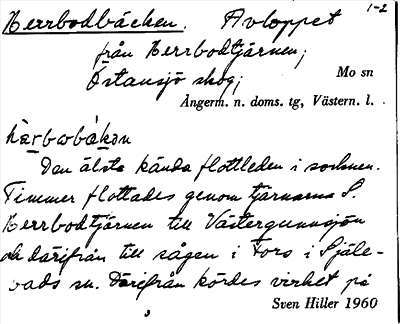 Herrbodbäcken. Avloppet 1-2
från Herrbodtjärnen;
Östansjö skog; Mo sn
Ångerm. n. doms. tg, Västern. l.
hàrbωbákan
Den älsta kända flottleden i socknen.
Timmer flottades genom tjärnarna S.
Herrbodtjärnen till Västergunnsjön
och därifrån till sågen i Fors i Själe-
vads sn. Därifrån kördes virket på
Sven Hiller 1960